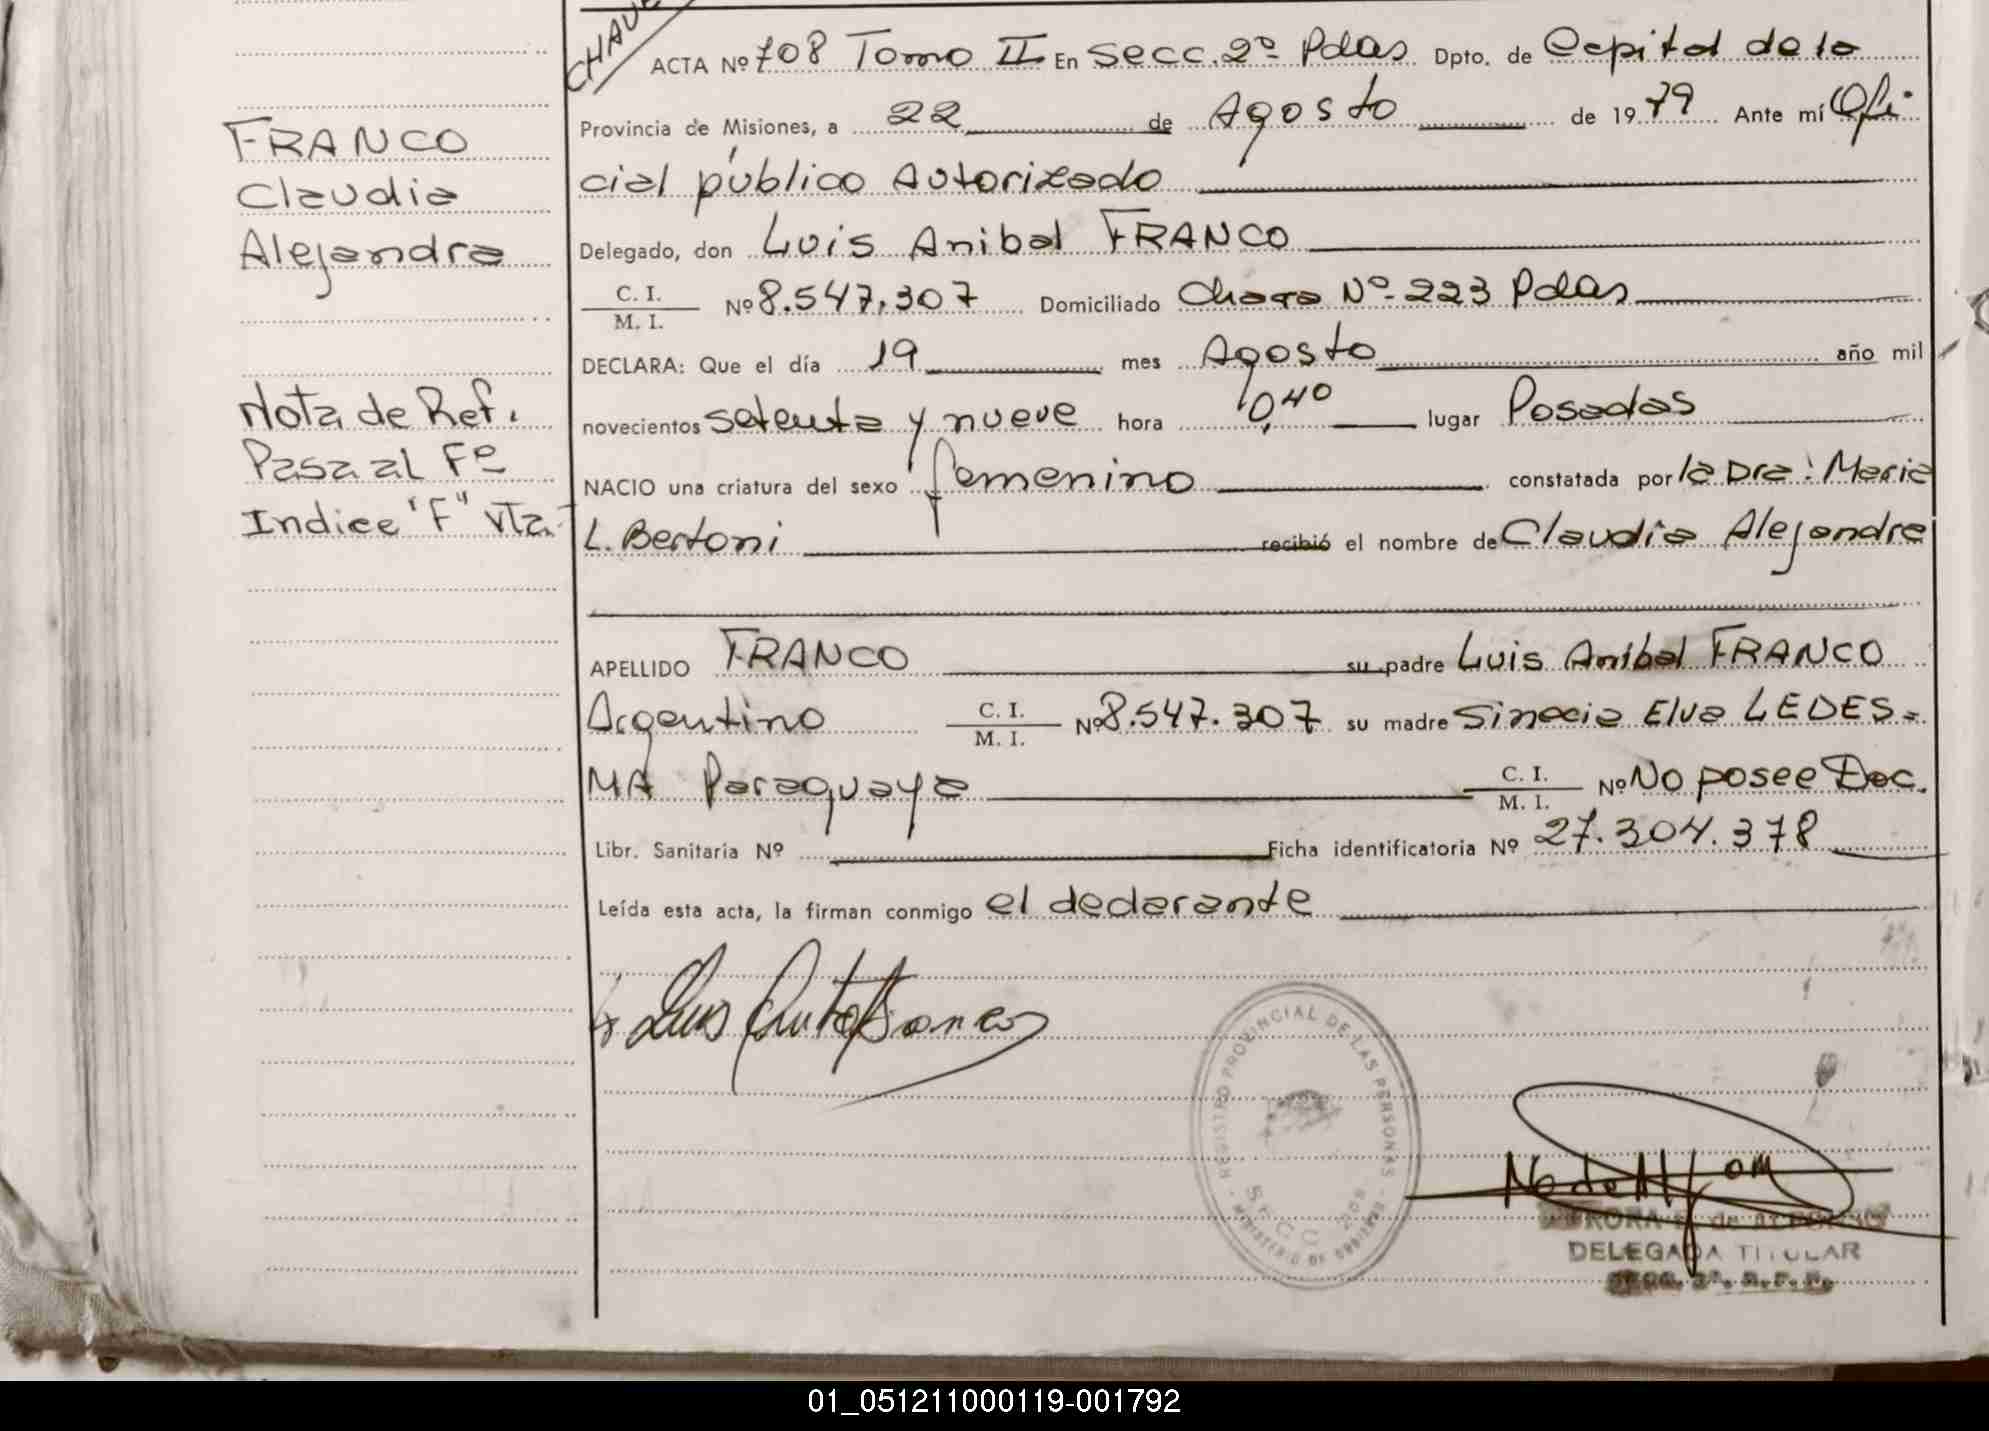 CHAVE
FRANCO
Claudia
Alejandra
Nota de Ref.
Pasa al Fº
Indice "F" vta
ACTA Nº 708 Tomo II En Secc. 2º Pdas Dpto. de Capital de la
Provincia de Misiones, a 22 de Agosto de 1979 Ante mí Ofi-
cial público Autorizado
Delegado, don Luis Anibal FRANCO
C. I.
M. I. Nº 8.547.307 Domiciliado Chacra Nº 223 Pdas
DECLARA: Que el día 19 mes Agosto año mil
novecientos setenta y nueve hora 0,40 lugar Posadas
NACIO una criatura del sexo femenino constatada por la Dra: Maria
L. Bertoni recibió el nombre de Claudia Alejandra
APELLIDO FRANCO su padre Luis Anibal FRANCO
Argentino C. I.
M. I. Nº 8.547.307 su madre Sinecia Elva LEDES-
MA Paraguaya C. I.
M. I. Nº No posee Doc.
Libr. Sanitaria Nº Ficha identificatoria Nº 27.304.378
Leída esta acta, la firman conmigo el declarante
Luis
REGISTRO PROVINCIAL DE LAS PERSONAS
MINISTERIO DE GOBIERNO
SECC.
DELEGADA TITULAR
01_051211000119-001792